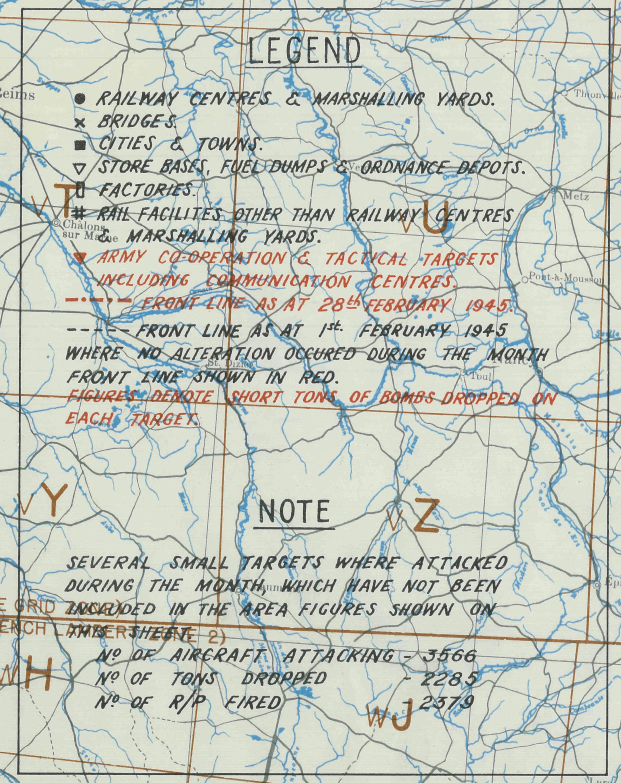 LEGEND
● RAILWAY CENTRES & MARSHALLING YARDS.
× BRIDGES.
■ CITIES & TOWNS.
▽ STORE BASES, FUEL DUMPS & ORDNANCE DEPOTS.
▯ FACTORIES.
# RAIL FACILITES OTHER THAN RAILWAY CENTRES
& MARSHALLING YARDS.
▼ ARMY CO-OPERATION & TACTICAL TARGETS
INCLUDING COMMUNICATION CENTRES.
FRONT LINE AS AT 28th FEBRUARY 1945.
FRONT LINE AS AT 1st. FEBRUARY 1945
WHERE NO ALTERATION OCCURED DURING THE MONTH
FRONT LINE SHOWN IN RED.
FIGURES DENOTE SHORT TONS OF BOMBS DROPPED ON
EACH TARGET.
NOTE
SEVERAL SMALL TARGETS WHERE ATTACKED
DURING THE MONTH WHICH HAVE NOT BEEN
INCLUDED IN THE AREA FIGURES SHOWN ON
THIS SHEET.
Nº OF AIRCRAFT ATTACKING - 3566
Nº OF TONS DROPPED - 2285
Nº OF R/P FIRED - 2379
eims
Thionville
Metz
Châlons
sur Marne
Pont-à-Mousson
St. Dizier
Toul
Ep
vT
vU
vY
vZ
wH
wJ
E GRID
ENCH LAMBERT ZONE 2)